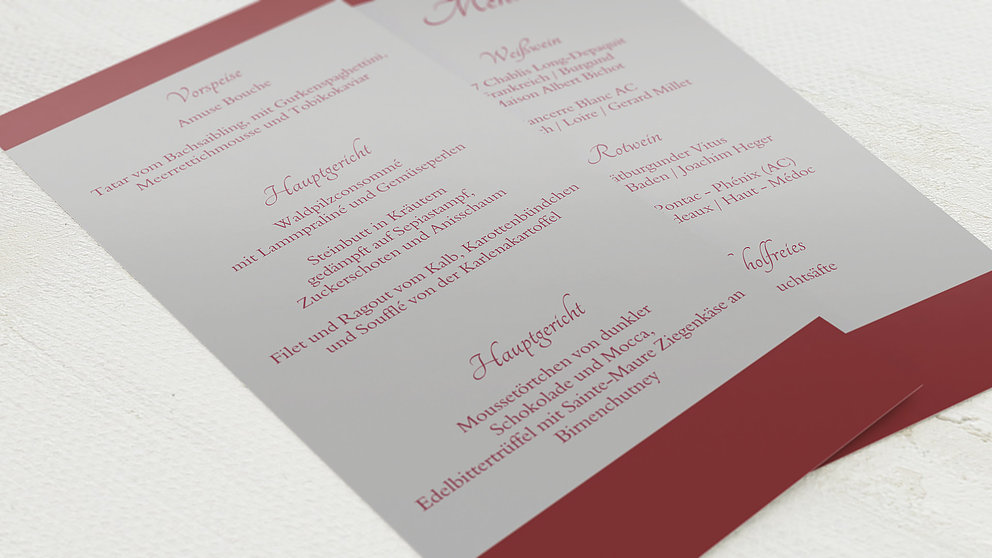 Vorspeise
Amuse Bouche
Tatar vom Bachsaibling, mit Gurkenspaghettini,
Meerrettichmousse und Tobikokaviar
Hauptgericht
Waldpilzconsommé
mit Lammpraliné und Gemüseperlen
Steinbutt in Kräutern
gedämpft auf Sepiastampf,
Zuckerschoten und Anisschaum
Filet und Ragout vom Kalb, Karottenbündchen
und Soufflé von der Karlenakartoffel
Hauptgericht
Moussetörtchen von dunkler
Schokolade und Mocca,
Edelbittertrüffel mit Sainte-Maure Ziegenkäse an
Birnenchutney
Weißwein
7 Chablis Long-Depaquit
Frankreich / Burgund
Maison Albert Bichot
ancerre Blanc AC
ch / Loire / Gerard Millet
Rotwein
itburgunder Vitus
Baden / Joachim Heger
Pontac – Phénix (AC)
deaux / Haut – Médoc
holfreies
uchtsäfte